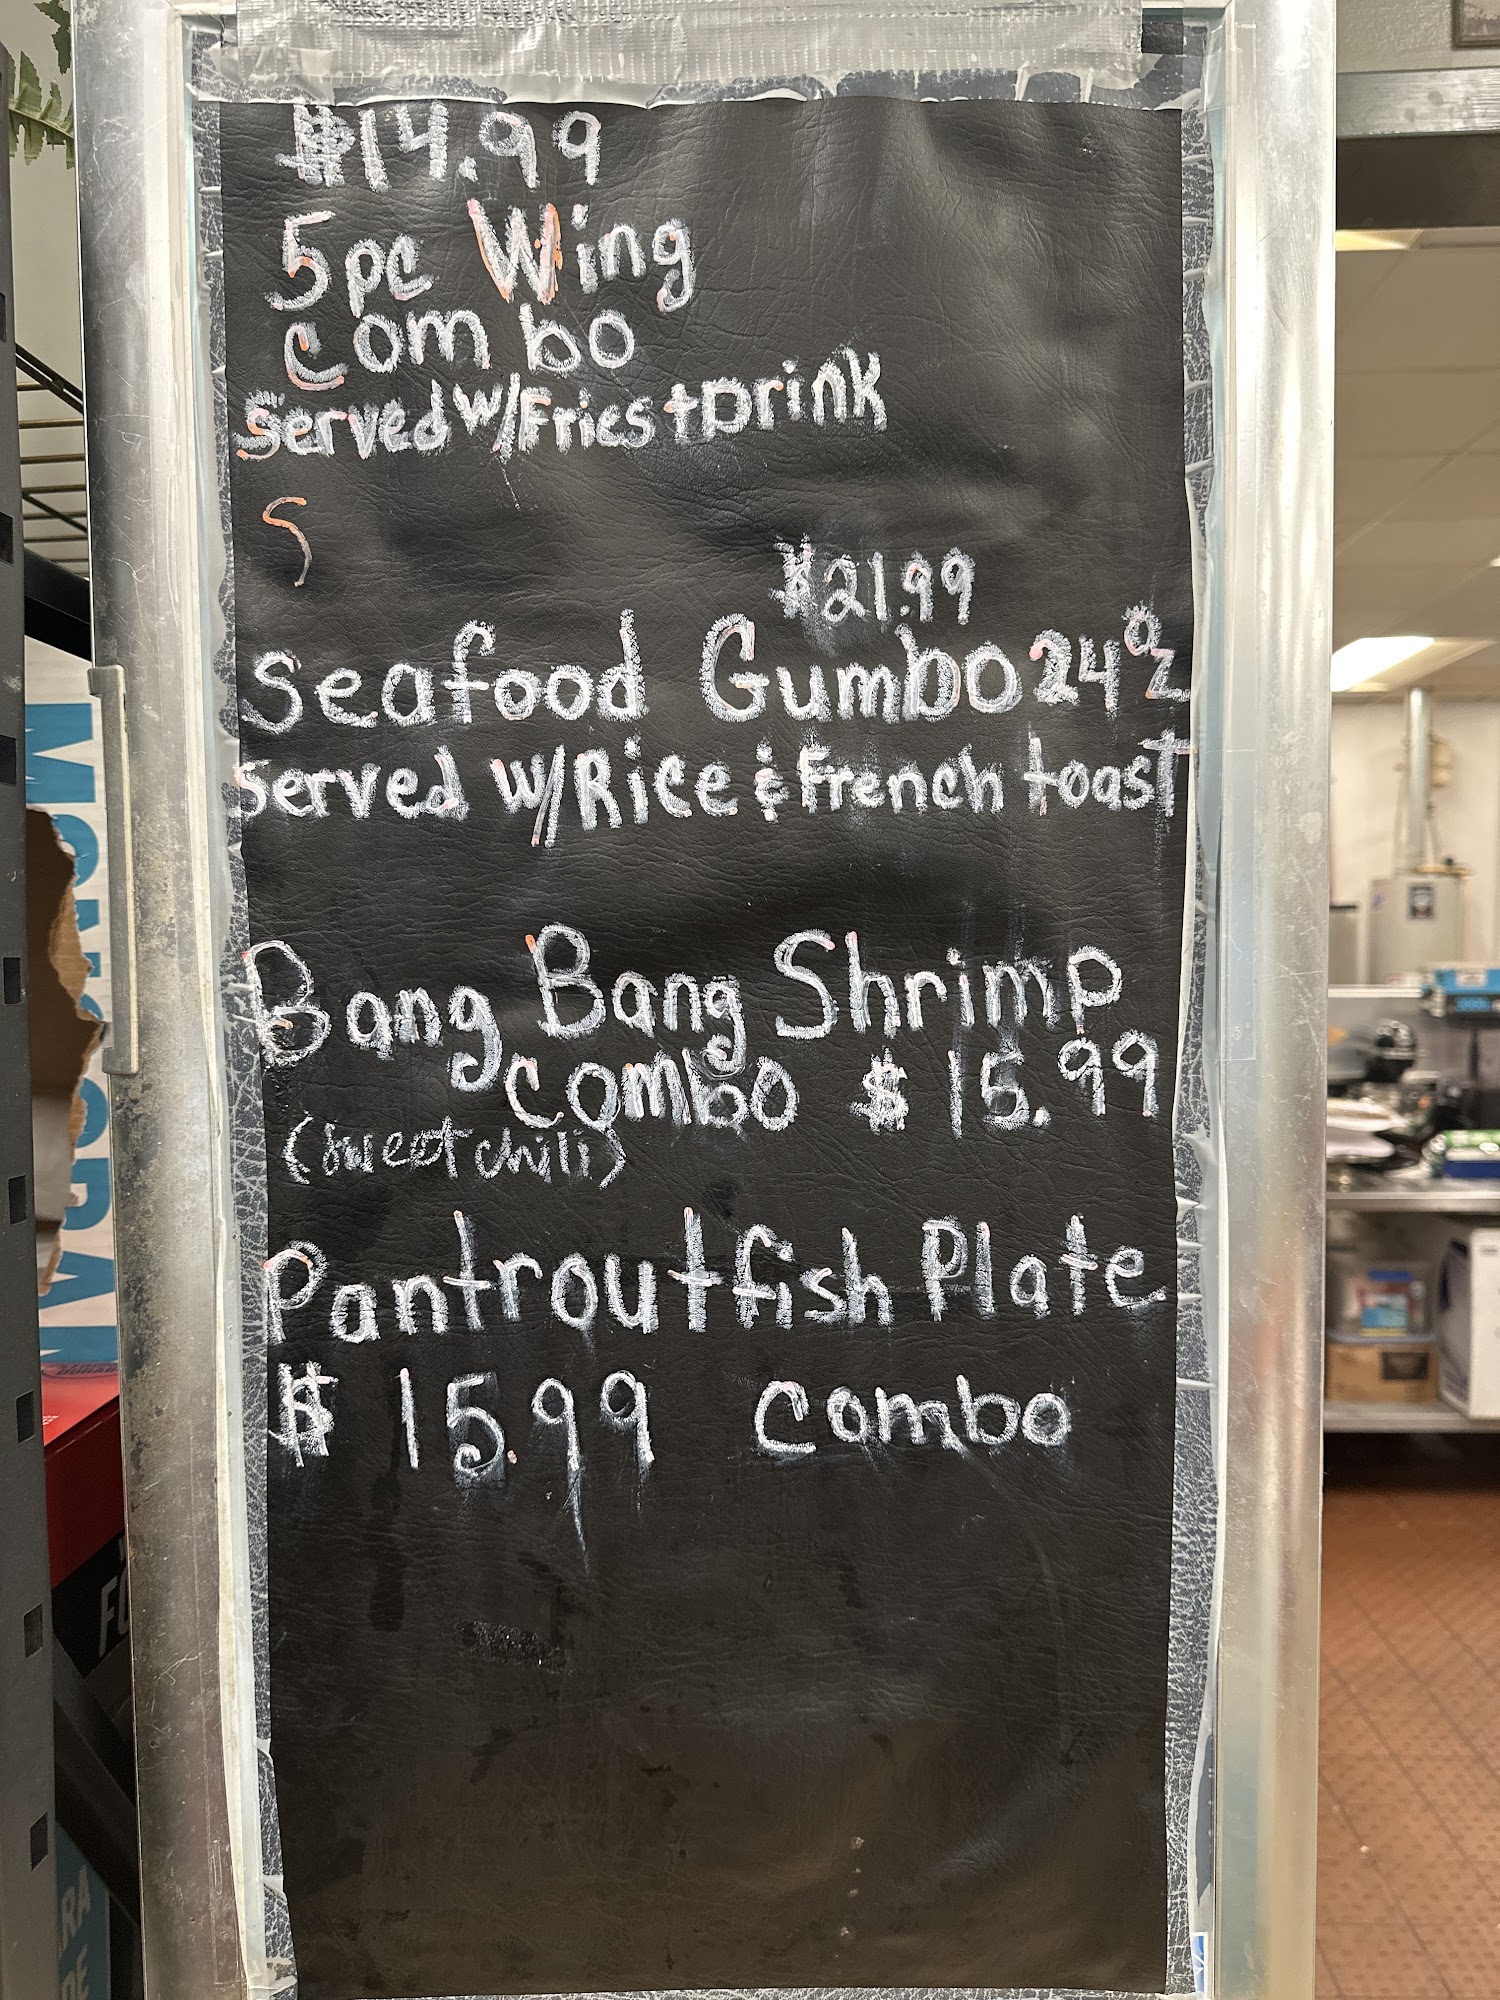 $14.99
5pc Wing
Combo
Served w/Fries + Drink
$21.99
Seafood Gumbo 24 oz
Served w/Rice & French toast
Bang Bang Shrimp
Combo $15.99
(Sweet chili)
Pantroutfish Plate
$15.99 Combo